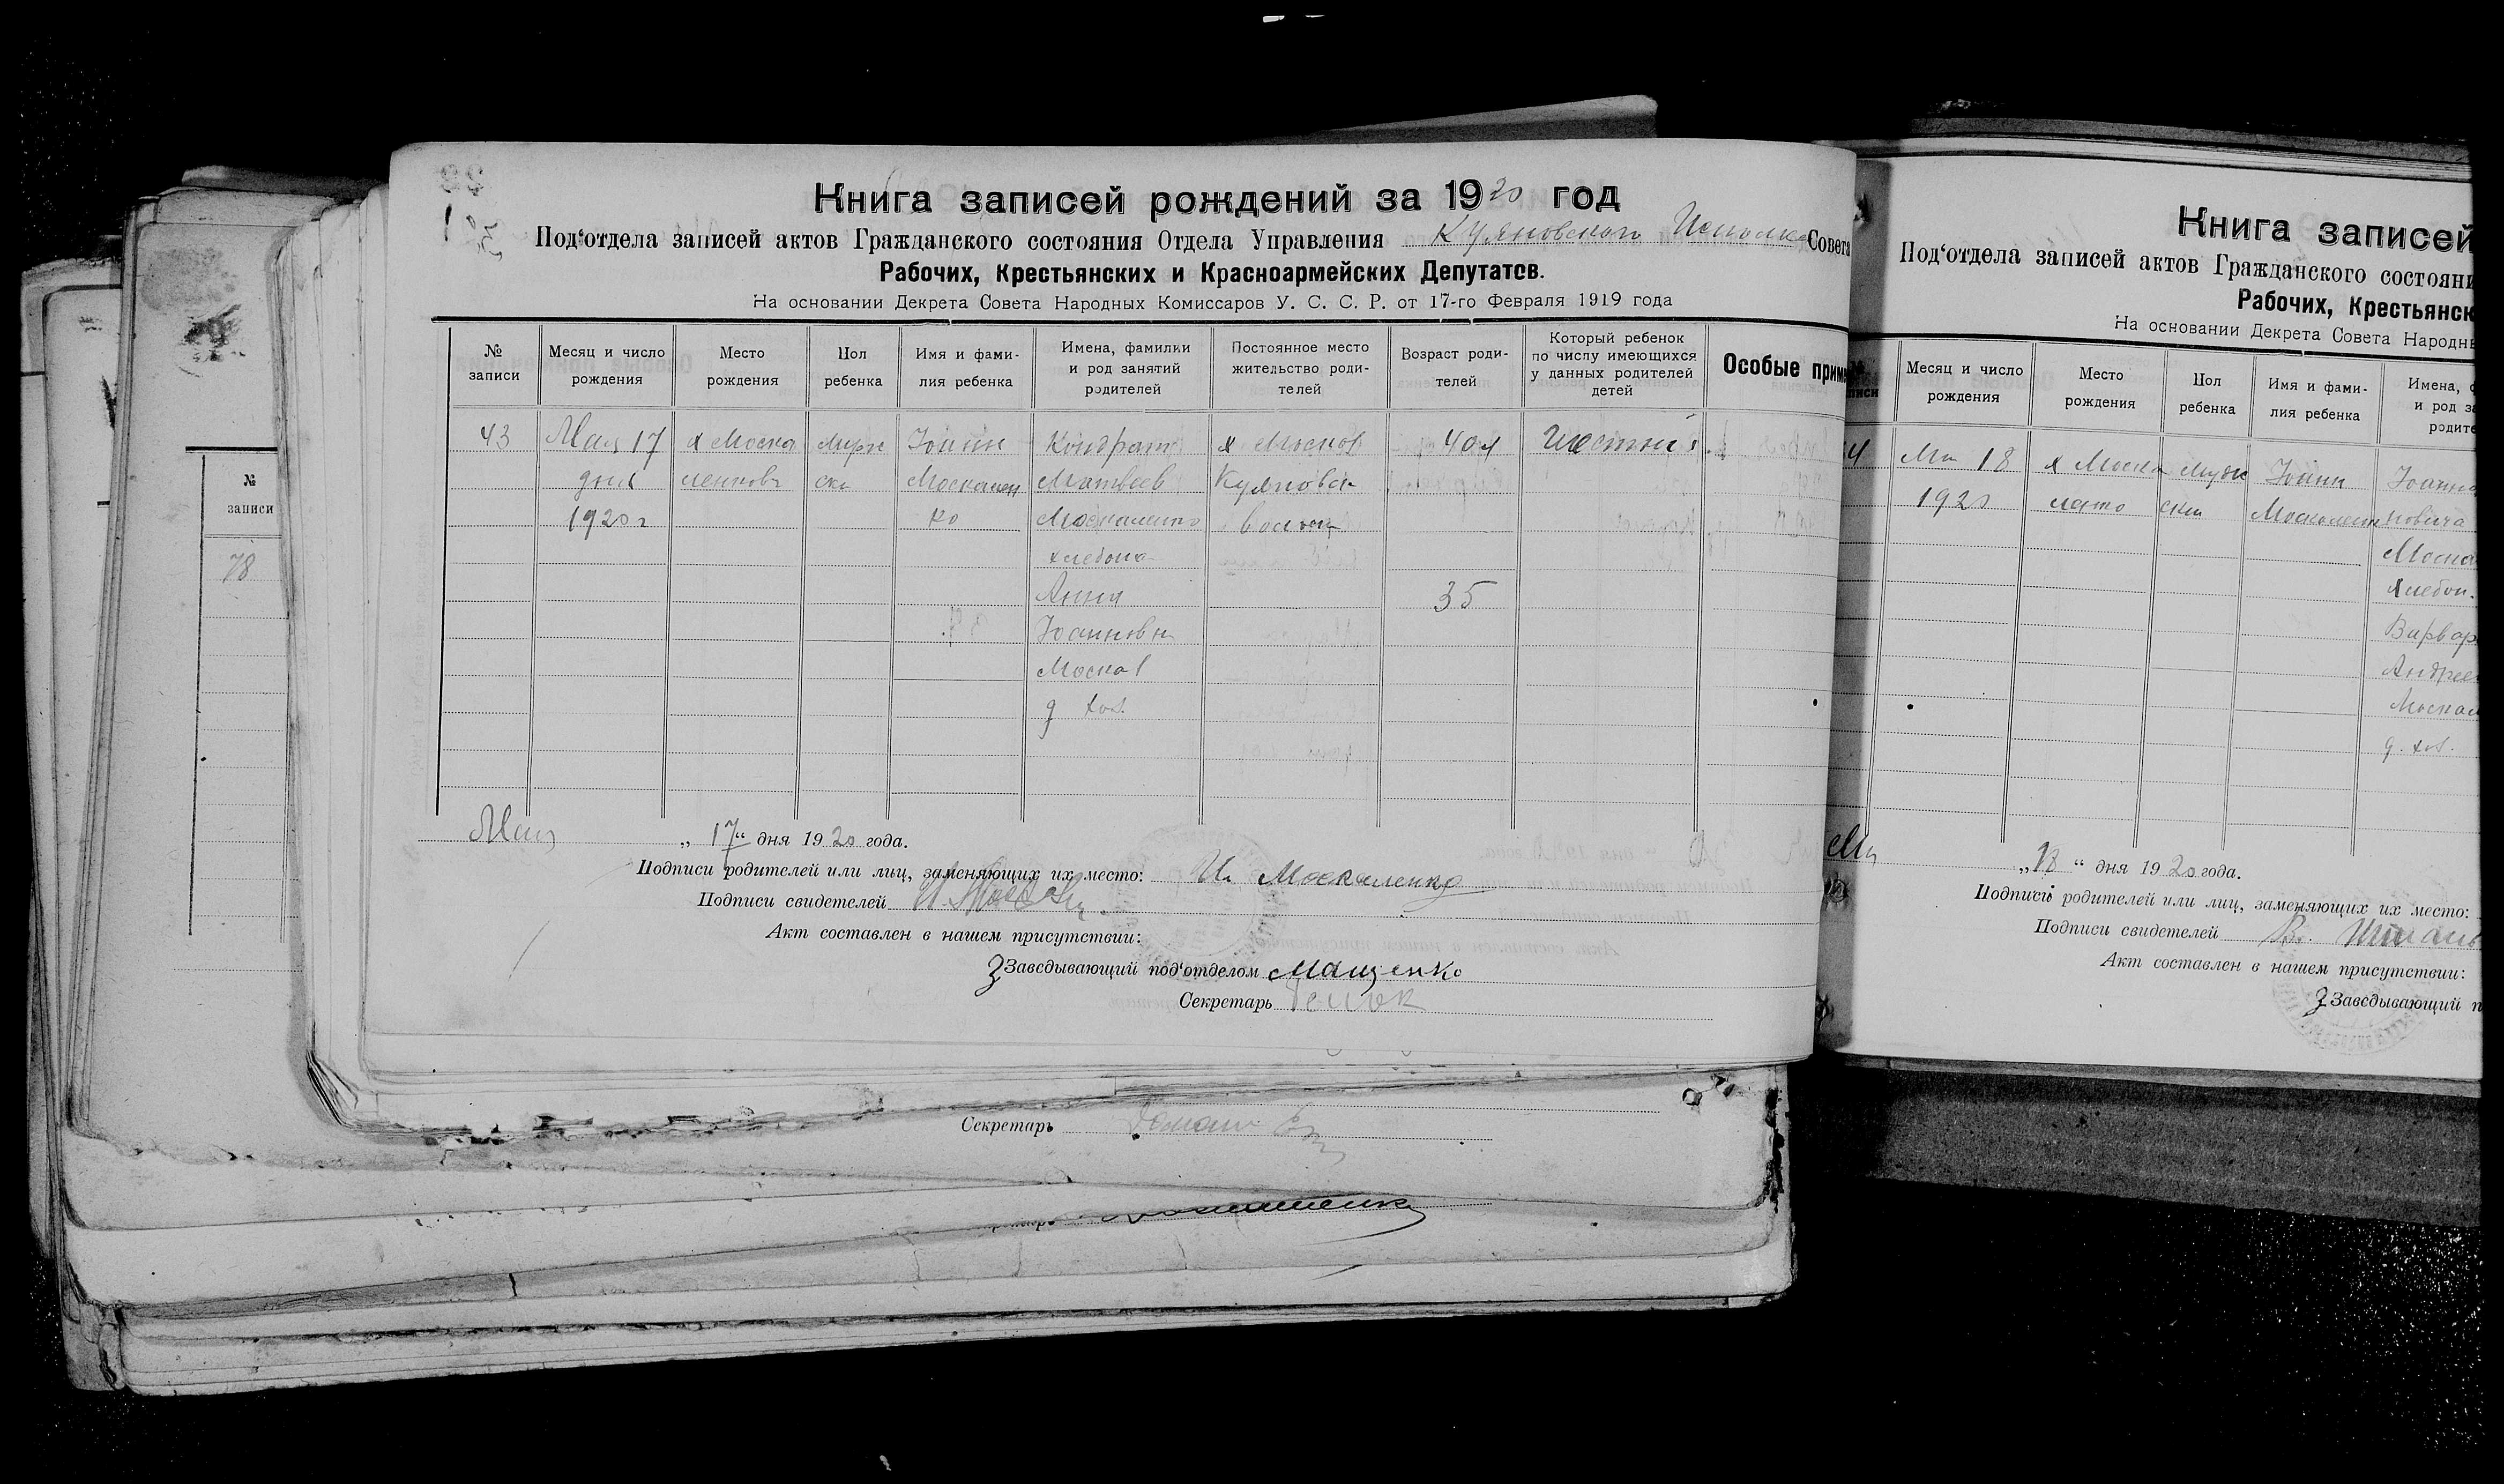 Книга записей рождений за 1920 год
Под‘отдела записей актов Гражданского состояния Отдела Управления Куяновского Исполко Совета
Рабочих, Крестьянских и Красноармейских Депутатов.
На основании Декрета Совета Народных Комиссаров У. С. С. Р. от 17-го Февраля 1919 года
№ записи
Месяц и число рождения
Место рождения
Пол ребенка
Имя и фами-
лия ребенка
Имена, фамилии
и род занятий
родителей
Постоянное место
жительство роди-
телей
Возраст роди-
телей
Который ребенок
по числу имеющихся
у данных родителей
детей
Особые прим
43
Мая 17
дня
1920 г
х Моска
ленков
Иоанн
Москален
ко
Кондрат
Матвеев
Москаленко
хлебопа
Анна
Иоановн
Моска
д хоз.
х Москов
Куяновск
волости
40 л
35
Шестий
Мая „ 17 “ дня 1920 года.
Подписи родителей или лиц, заменяющих их место: Ив Москаленко
Подписи свидетелей
Акт составлен в нашем присутствии:
Заведывающий под‘отделом Мащенко
Секретарь
Секретарь
№
записи
78
Книга записей
Под‘отдела записей актов Гражданского состояни
Рабочих, Крестьянск
На основании Декрета Совета Народн
Месяц и число
рождения
Место
рождения
Пол
ребенка
Имя и фами-
лия ребенка
Имена, ф
и род за
родите
4
18
1920
х Моска
Иоанн
Москален
Иоанн
нович
Моска
хлебоп.
Варвар
Андрее
Москал
д. хоз.
„ 18 “ дня 1920 года.
Подписи родителей или лиц, заменяющих их место:
Подписи свидетелей В.
Акт составлен в нашем присутствии:
Заведывающий п